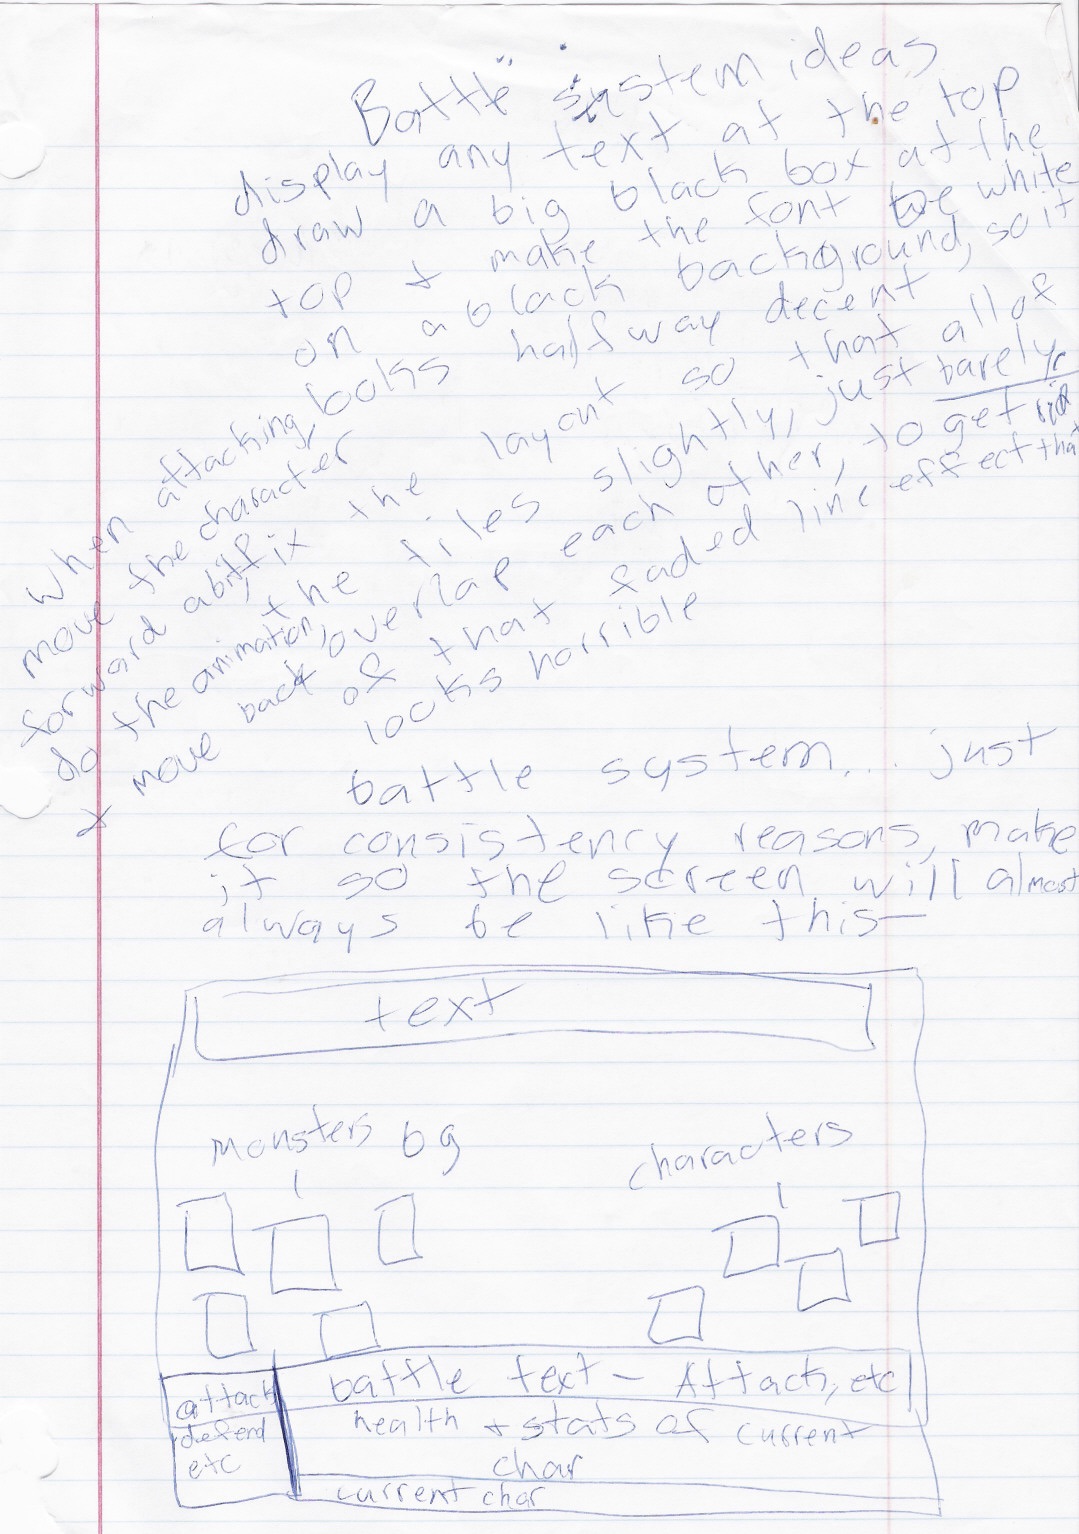 Battle system ideas
display any text at the top
draw a big black box at the
top + make the font be white
on a black background, so it
looks halfway decent
when attacking,
move the character
forward abit,
do the animation,
+ move back
fix the layout so that all of
the tiles slightly, just barely,
overlap each other, to get rid
of that faded line effect that
looks horrible
battle system... just
for consistency reasons, make
it so the screen will almost
always be like this—
text
monsters bg
characters
attack
defend
etc
battle text - Attack, etc
health + stats of current
char
current char